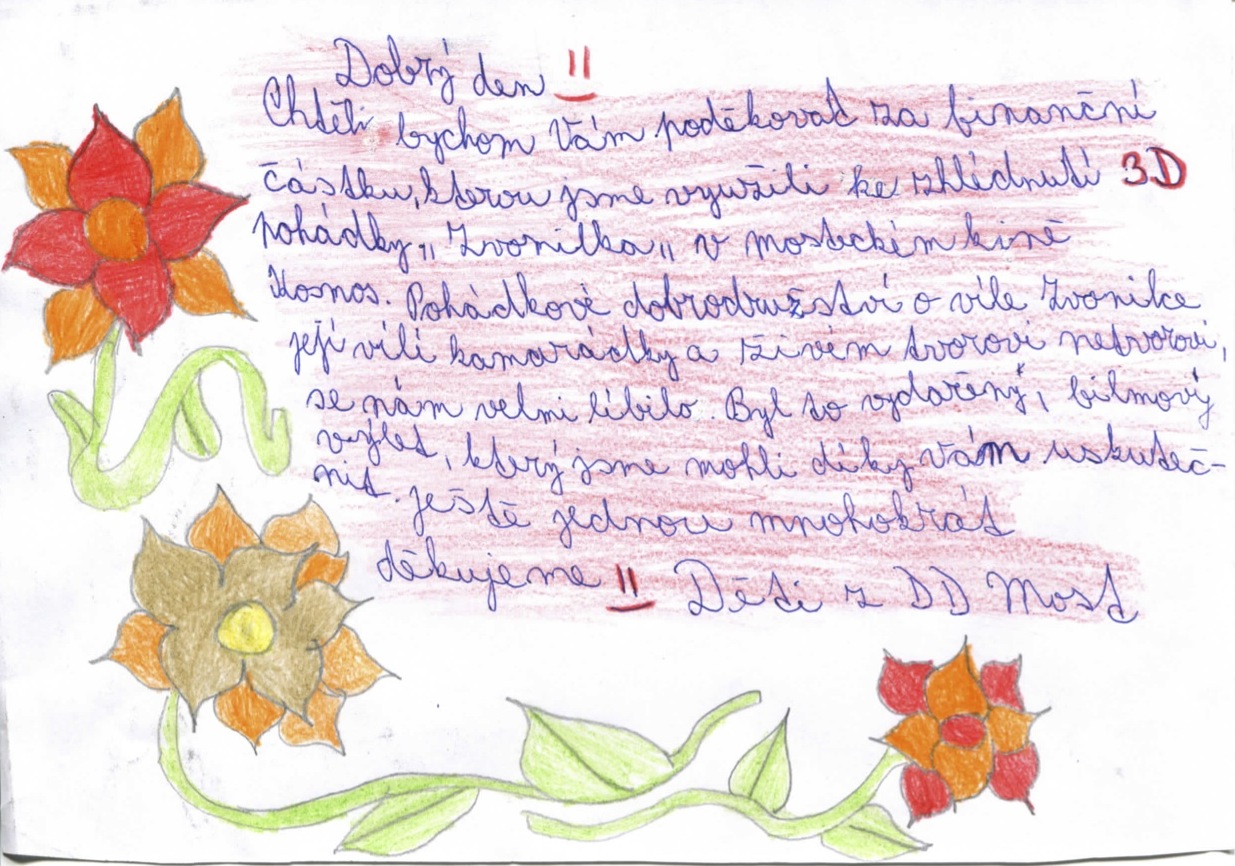 Dobrý den !!
Chtěli bychom Vám poděkovat za finanční
částku, kterou jsme využili ke zhlédnutí 3D
pohádky „ Zvonilka „ v mosteckém kině
Kosnos. Pohádkové dobrodružství o víle Zvonilce
její vílí kamarádky a živém tvorovi netvorovi,
se nám velmi líbilo. Byl to vydařený, filmový
výlet, který jsme mohli díky Vám uskuteč-
nit. ještě jednou mnohokrát
děkujeme !! Děti z DD Most